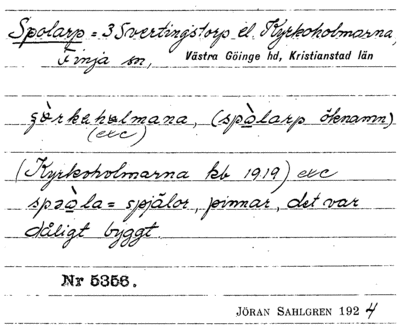 Spolarp = 3 Svertingstorp el. Kyrkoholmarna,
Finja sn, Västra Göinge hd, Kristianstad län
(spòlarp öknamn)
(exc)
(Kyrkoholmarna kb 1919) exc
= spjälor, pinnar, det var
dåligt byggt.
Nr 5356.
JÖRAN SAHLGREN 1924